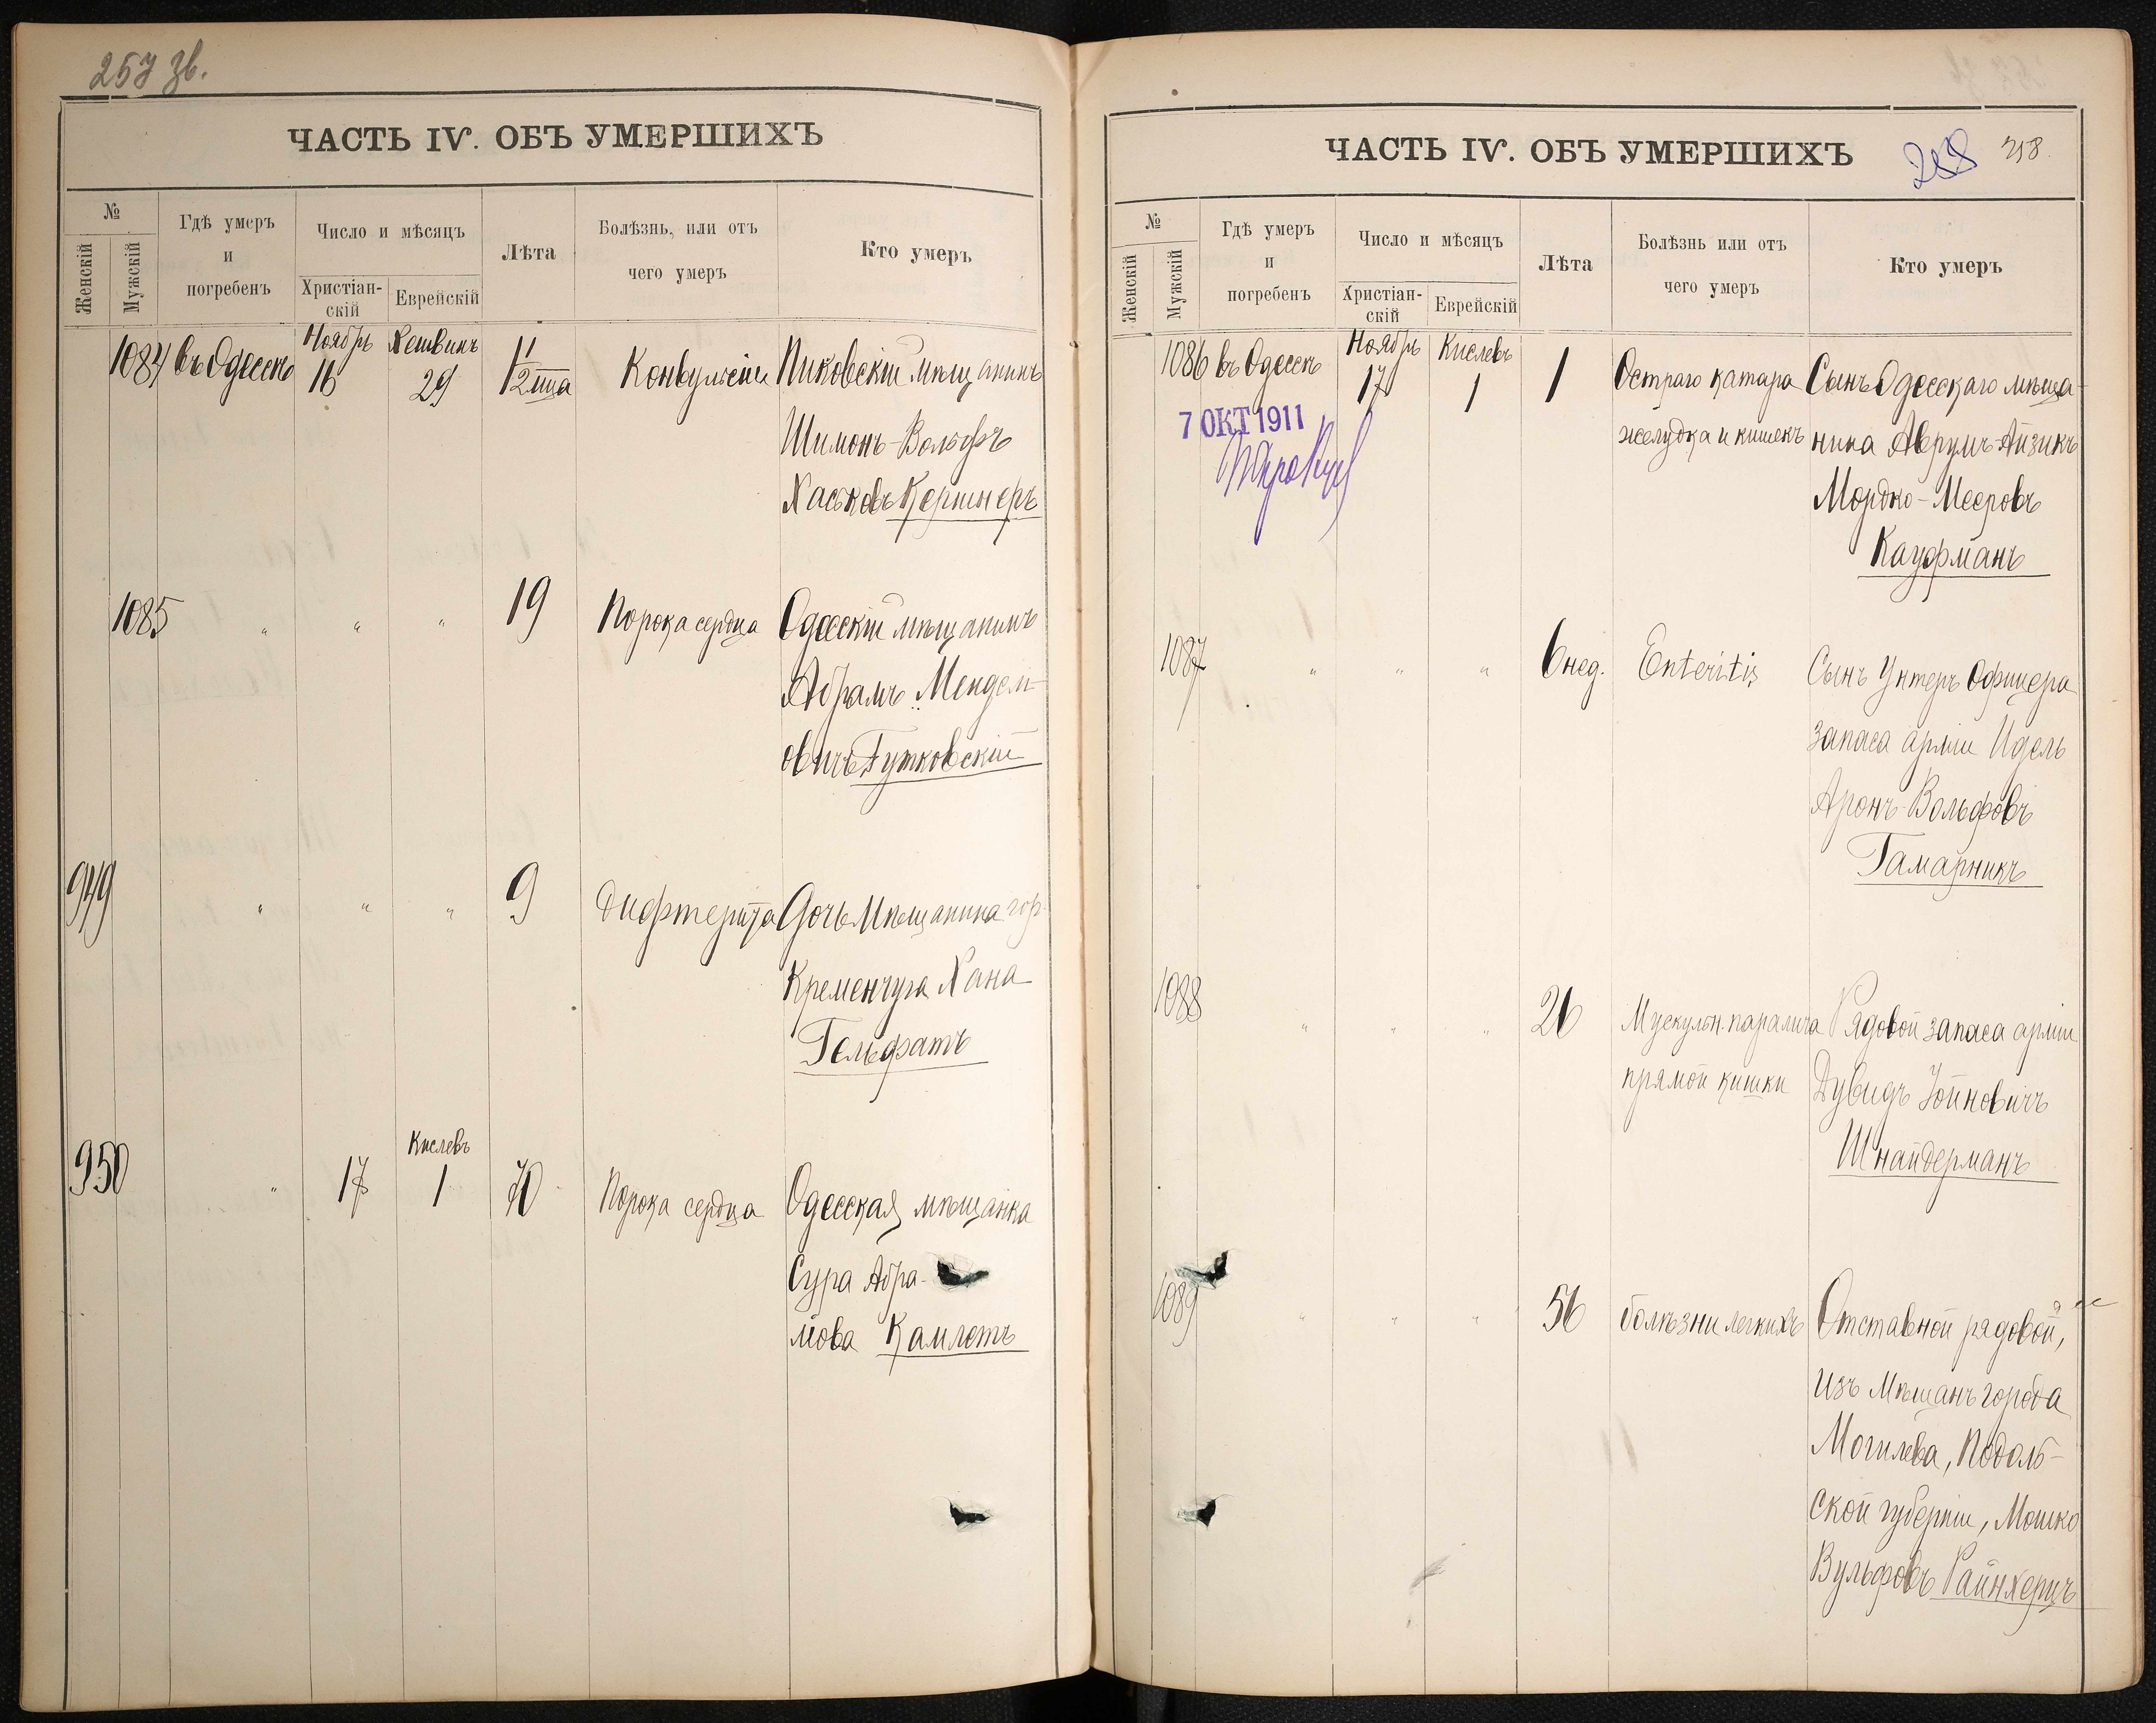 257 зв.
ЧАСТЬ IV. ОБЪ УМЕРШИХЪ
№
Женскій
Мужскій
Гдѣ умеръ
и
погребенъ
Число и мѣсяцъ
Христіан-
скій
Еврейскій
Лѣта
Болѣзнь, или отъ
чего умеръ
Кто умеръ
Ноябрь Хешвинъ
1084 въ Одессѣ 16 29 11/12  mца Конвульсіи Пиковскій мѣщанинъ
Шимонъ-Вольфъ
Хасковъ Кершнеръ
1085 " " " 19 Порока сердца Одесскій мѣщанинъ
Абрамъ Мендел-
овичъ Гутковскій
949 " " " 9 Дифтерита Дочь Мѣщанина гор.
Кременчуга Хана
Гельфатъ
Кислевъ
950 " 17 1 70 Порока сердца Одесская мѣщанка
Сура Абра-
мова Камлетъ
ЧАСТЬ IV. ОБЪ УМЕРШИХЪ
258 258.
№
Женскій
Мужскій
Гдѣ умеръ
и
погребенъ
Число и мѣсяцъ
Христіан-
скій
Еврейскій
Лѣта
Болѣзнь или отъ
чего умеръ
Кто умеръ
Ноябрь Кислевъ
1086 въ Одессѣ 17 1 1 Остраго катара Сынъ Одесскаго мѣща-
7 ОКТ 1911
желудка и кишекъ нина Аврумъ-Айзикъ
Мордко-Мееровъ
Кауфманъ
1087 " " " 6 нед. Enteritis Сынъ Унтеръ Офицера
запаса арміи Идель
Аронъ-Вольфовъ
Гамарникъ
1088 " " " 26 Мускульн. паралича Рядовой запаса арміи
прямой кишки Дувидъ Іойновичъ
Шнайдерманъ
1089 " " " 56 болѣзни легкихъ Отставной рядовой,
изъ Мѣщанъ города
Могилева, Подоль-
ской губерніи, Мошко
Вульфовъ Райнхерцъ